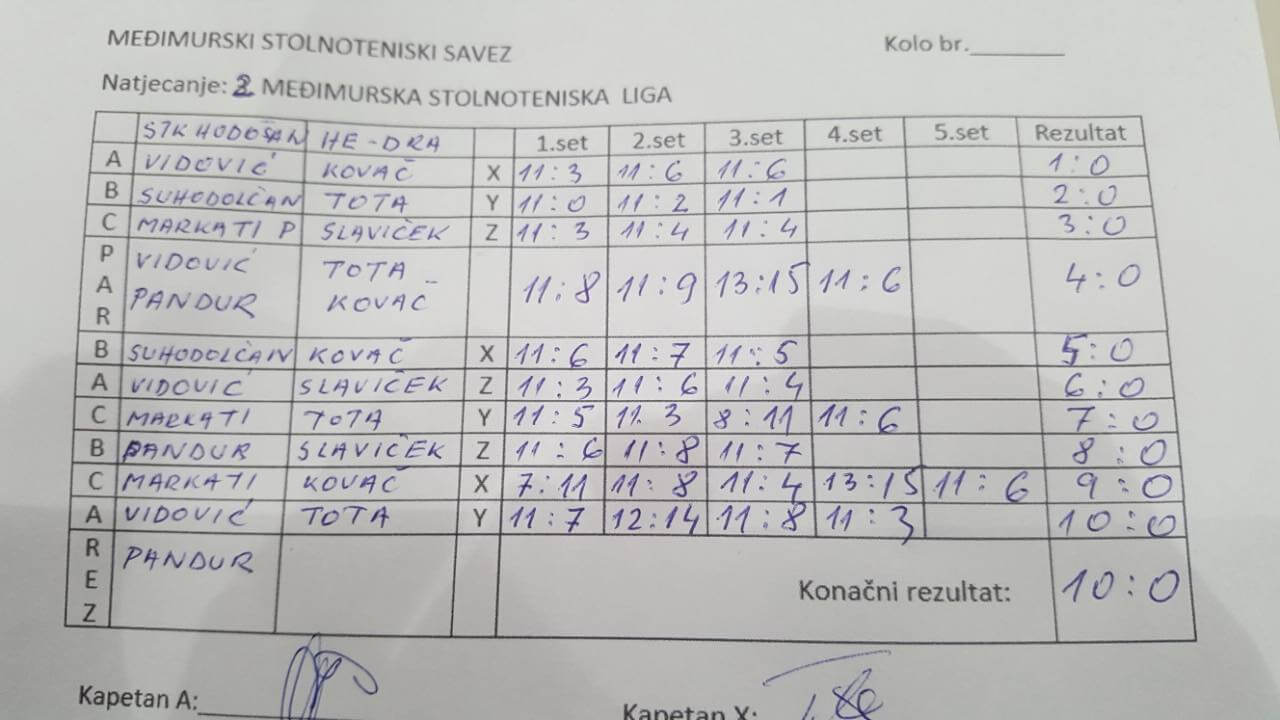 MEĐIMURSKI STOLNOTENISKI SAVEZ
Kolo br.________
Natjecanje: 2. MEĐIMURSKA STOLNOTENISKA LIGA
STK HODOŠAN HE-DRA 1.set 2.set 3.set 4.set 5.set Rezultat
A VIDOVIĆ KOVAČ X 11:3 11:6 11:6 1:0
B SUHODOLČAN TOTA Y 11:0 11:2 11:1 2:0
C MARKATI P SLAVIČEK Z 11:3 11:4 11:4 3:0
PAR VIDOVIĆ TOTA
PANDUR KOVAČ 11:8 11:9 13:15 11:6 4:0
B SUHODOLČAN KOVAČ X 11:6 11:7 11:5 5:0
A VIDOVIĆ SLAVIČEK Z 11:3 11:6 11:4 6:0
C MARKATI TOTA Y 11:5 11:3 8:11 11:6 7:0
B PANDUR SLAVIČEK Z 11:6 11:8 11:7 8:0
C MARKATI KOVAČ X 7:11 11:8 11:4 13:15 11:6 9:0
A VIDOVIĆ TOTA Y 11:7 12:14 11:8 11:3 10:0
REZ PANDUR Konačni rezultat: 10:0
Kapetan A:
Kapetan X: